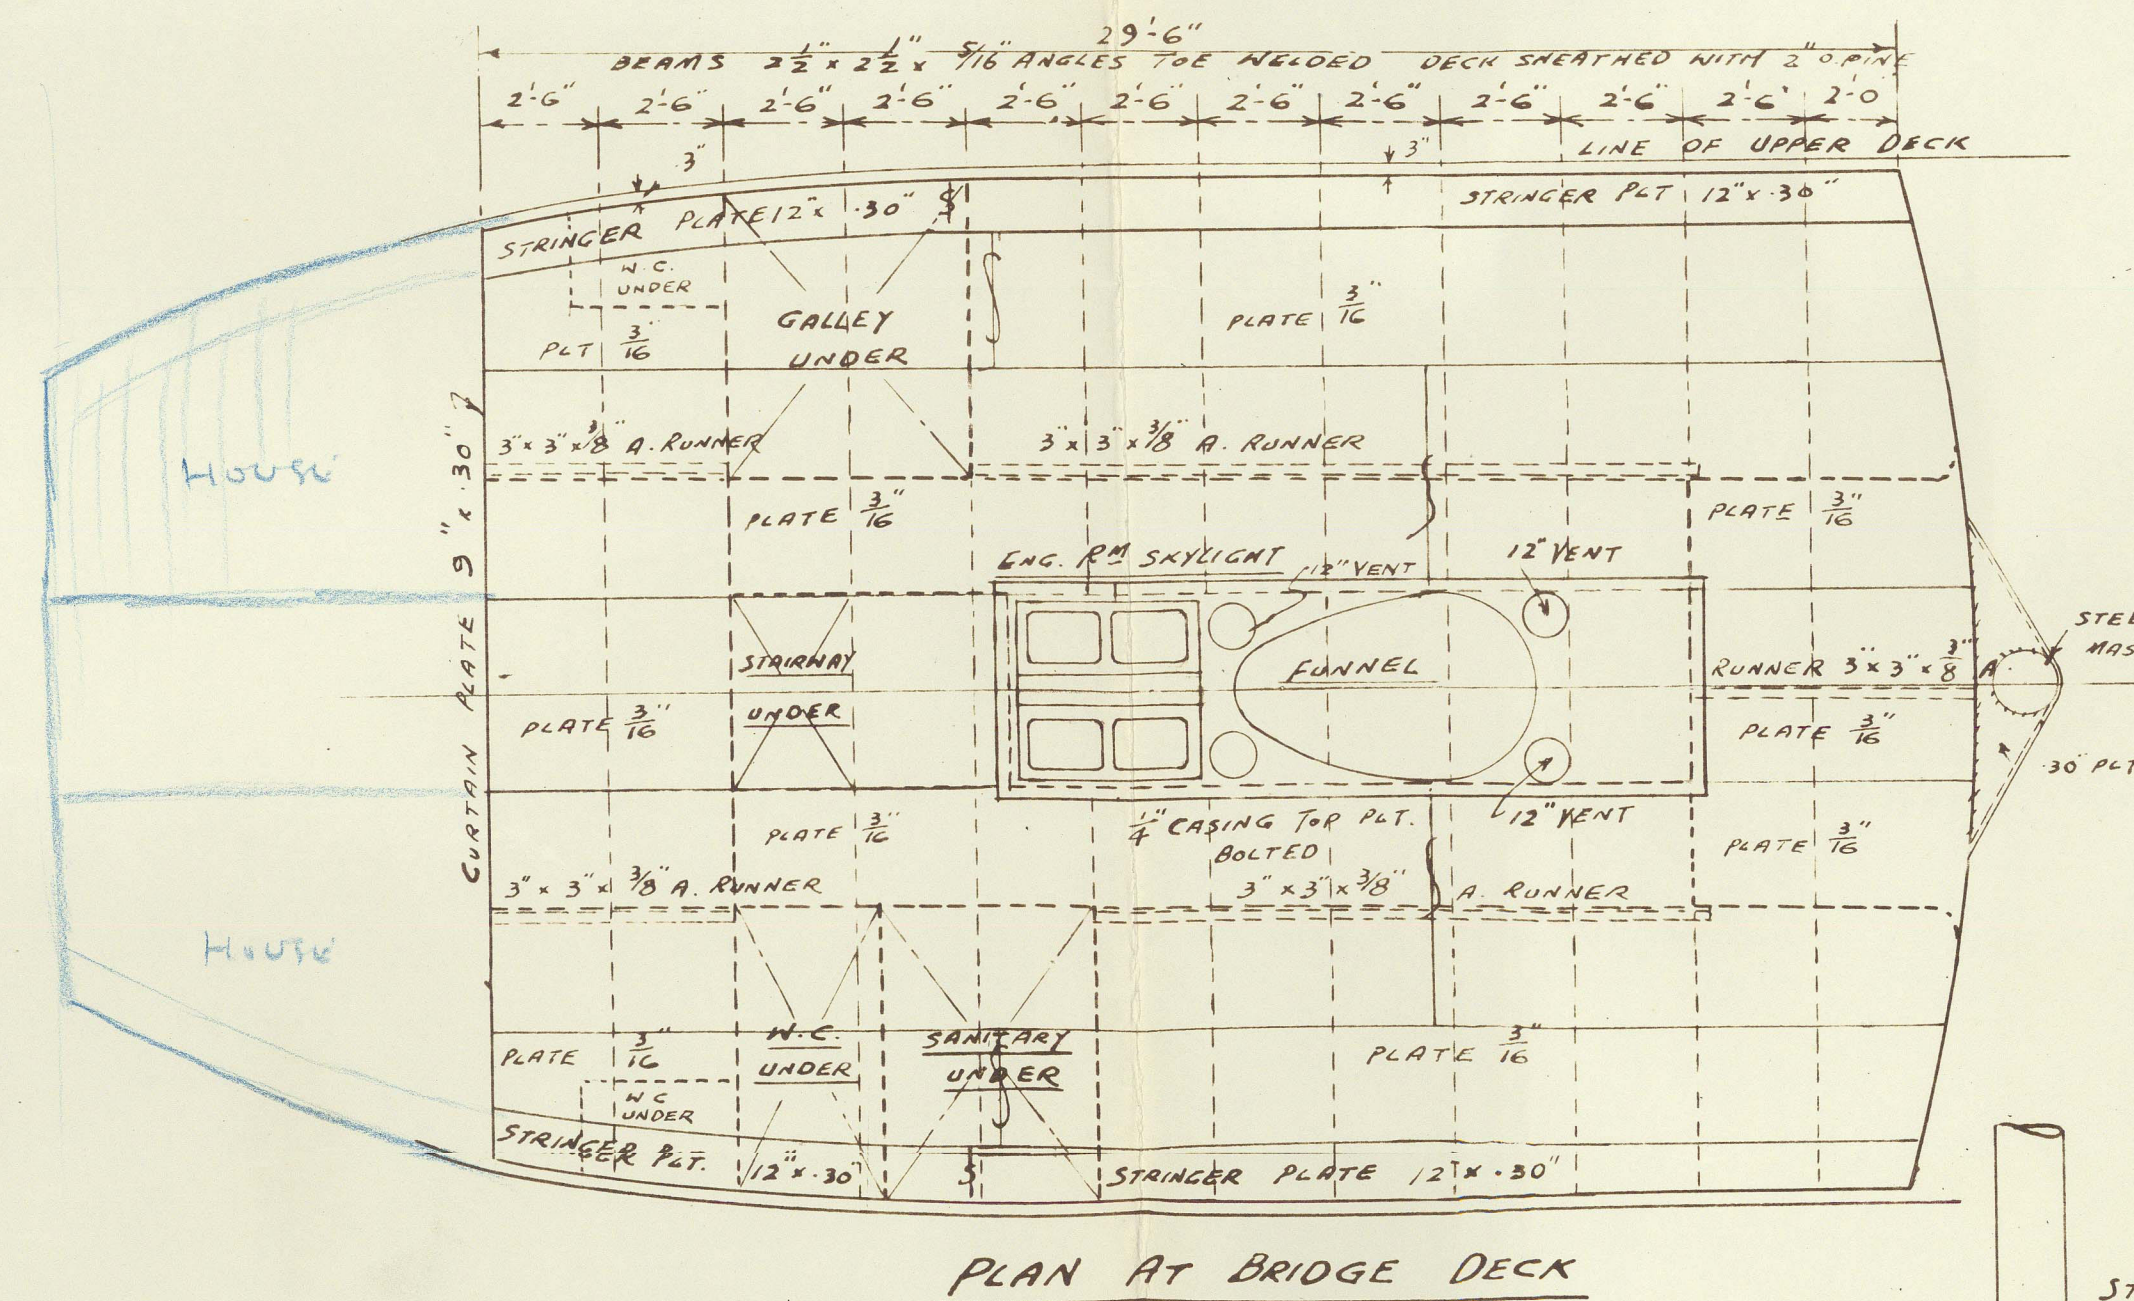 29'-6"
BEAMS 2½" x 2½" x 5/16" ANGLES TOE WELDED DECK SHEATHED WITH 2" O.PINE
2'-6" 2'-6" 2'-6" 2'-6" 2'-6" 2'-6" 2'-6" 2'-6" 2'-6" 2'-6" 2'-6' 2'-0
3" 3" LINE OF UPPER DECK
STRINGER PLATE 12"x .30"
STRINGER PLT 12"x .30"
W.C.
UNDER
PLT 3/16"
GALLEY
UNDER
PLATE 3/16"
3"x 3"x 3/8" A. RUNNER
3"x 3"x 3/8" A. RUNNER
HOUSE
CURTAIN PLATE 9" x .30"
PLATE 3/16"
PLATE 3/16"
ENG. RM SKYLIGHT
12" VENT
12" VENT
STAIRWAY
UNDER
FUNNEL
RUNNER 3"x 3"x 3/8" A.
PLATE 3/16"
PLATE 3/16"
.30" PLT
PLATE 3/16"
1/4" CASING TOP PLT.
BOLTED
12" VENT
PLATE 3/16"
3" x 3" x 3/8" A. RUNNER
3" x 3" x 3/8" A. RUNNER
HOUSE
PLATE 3/16"
W.C.
UNDER
SANITARY
UNDER
PLATE 3/16"
W C
UNDER
STRINGER PLT. 12"x .30"
STRINGER PLATE 12"x .30"
PLAN AT BRIDGE DECK